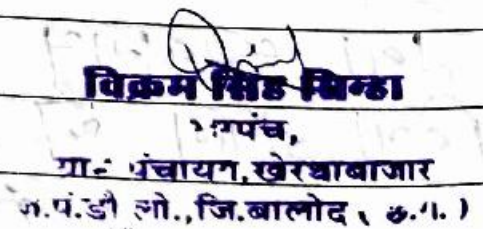 विक्रम सिंह सिन्हा
सरपंच,
ग्रा. पंचायत, खेरथाबाजार
ज.पं.डौ लो.,जि.बालोद (छ.ग.)